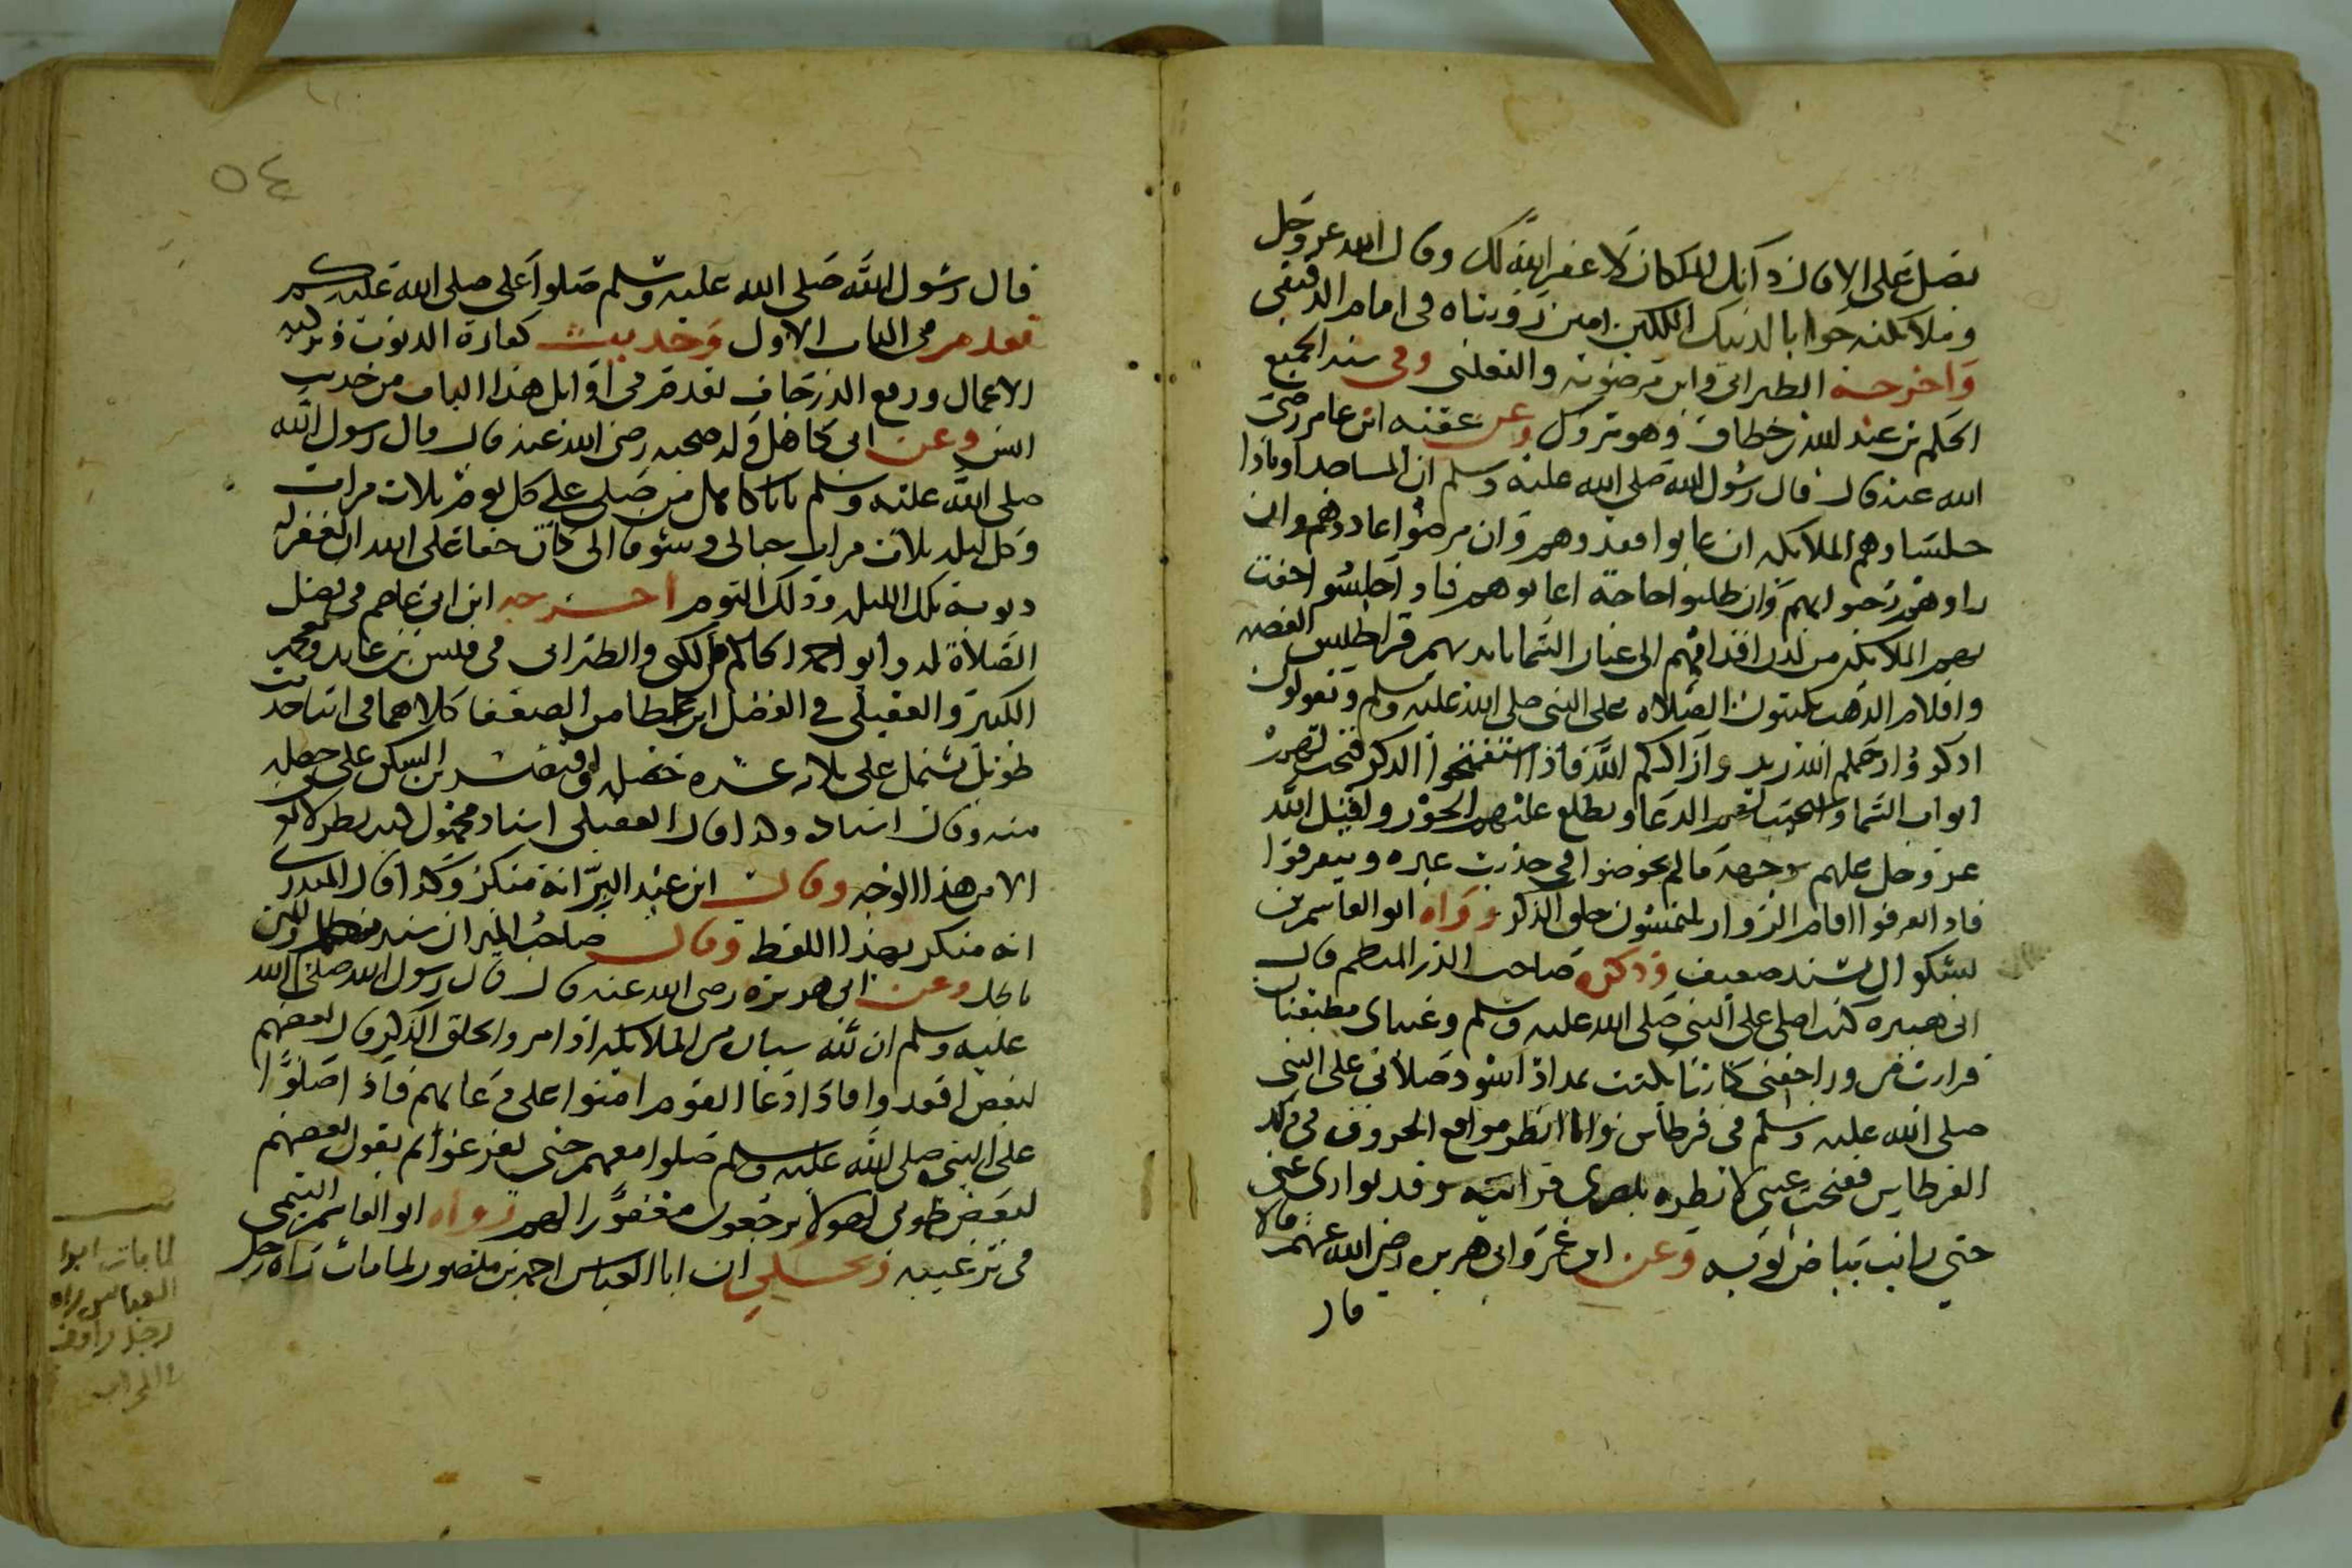 يصل علي الا قال ذانك الملكان لا غفر الله لك وقال الله عز وجل
وملائكته جوابا لذينك الملكين امين رويناه في امالي الدقيقي
واخرجه الطبراني وابن مردويه والثعلبي وفي سند الجميع
الحكم بن عبد الله بن خطاف وهو متروك وعن عقبه ابن عامر رضي
الله عنه قال قال رسول الله صلى الله عليه وسلم ان للمساجد اوتادا
جلساوهم الملائكه ان غابوا فقدوهم وان مرضوا عادوهم وان
راوهم رحبوا بهم وان طلبوا حاجة اعانوهم فاذا جلسوا حفت
بهم الملائكه من لدن اقدامهم الى عنان السما بايديهم قراطيس الفضه
واقلام الذهب يكتبون الصلاه على النبي صلى الله عليه وسلم ويقولون
اذكروا رحمكم الله زيدوا زادكم الله فاذا استفتحوا الذكر فتحت لهم
ابواب السما واستجيب لهم الدعا وتطلع عليهم الحور واقبل الله
عز وجل عليهم بوجهه ما لم يخوضوا في حديث غيره ويتفرقوا
فاذا تفرقوا اقام الزوار يلتمسون حلق الذكر رواه ابو القاسم بن
بشكوال بسند ضعيف وذكره صاحب الدر المنظم قال
ابي هبيره كنت اصلي على النبي صلى الله عليه وسلم وعيناي مطبقتان
فرايت من ورا جفني كاتبا يكتب بمداد اسود صلاتي على النبي
صلى الله عليه وسلم في قرطاس وانا انظر مواقع الحروف في ذلك
القرطاس ففتحت عيني لانظره ببصري فرايته وقد توارى عني
حتى رايت بياض ثوبه وعن ابن عمر وابي هريره رضي الله عنهم قالا
قال
٥٤
قال رسول الله صلى الله عليه وسلم صلوا علي صلى الله عليكم
تقدم في الباب الاول وحديث كفارة الذنوب وتزكيه
الاعمال ورفع الدرجات تقدم في اوايل هذا الباب من حديث
انس وعن ابي كاهل وله صحبه رضي الله عنه قال قال رسول الله
صلى الله عليه وسلم يابا كاهل من صلى علي كل يوم ثلاث مرات
وكل ليله ثلاث مرات حبا لي وشوقا الي كان حقا على الله ان يغفر له
ذنوبه تلك الليله وذلك اليوم اخرجه ابن ابي عاصم في فضل
الصلاة له وابو احمد الحاكم في الكنى والطبراني في قيس بن عايد ومعجمه
الكبير والعقيلي في الضعفا كلاهما في اثنا حديث
طويل يشتمل على ثلاثه عشره خصله واقتصر ابن السكن على خصله
منه وقال اسناده وكذا قال العقيلي اسناد مجهول فيه نظر لا يعرف
الا من هذا الوجه وقال ابن عبد البر انه منكر وكذا قال المنذري
انه منكر بهذا اللفظ وقال صاحب الميزان سنده مظلم والمتن
باطل وعن ابي هريره رضي الله عنه قال قال رسول الله صلى الله
عليه وسلم ان لله سياره من الملائكه اذا مروا بحلق الذكر قال بعضهم
لبعض اقعدوا فاذا دعا القوم امنوا على دعايهم فاذا صلوا
على النبي صلى الله عليه وسلم صلوا معهم حتى يفرغوا ثم يقول بعضهم
لبعض طوبى لهولا يرجعون مغفورا لهم رواه ابو القاسم التيمي
في ترغيبه وحكي ان ابا العباس احمد بن منصور لما مات راه رجل
لما مات ابوا
العباس راه
رجل واقف
في المحراب